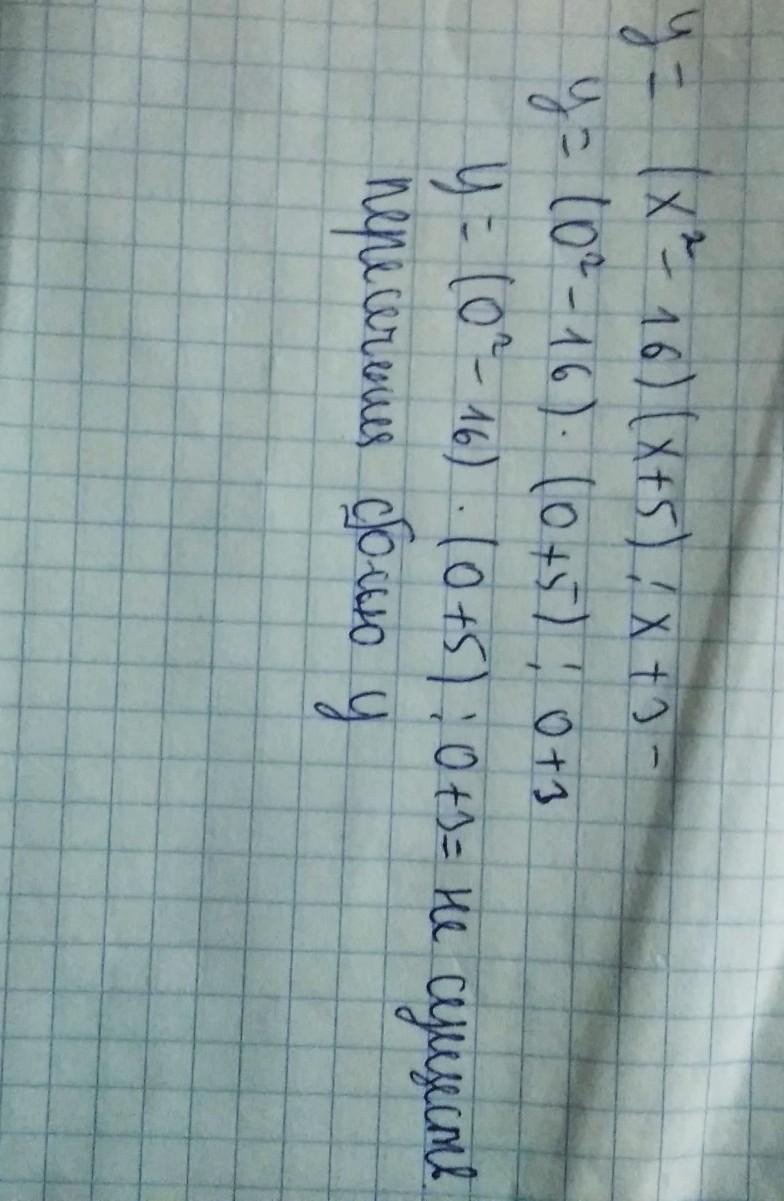 y = (x² - 16)(x+5) : x + 3 -
y = (0² - 16) · (0+5) : 0+3
y = (0² - 16) · (0+5) : 0+3 = не существ
пересечения с осью y